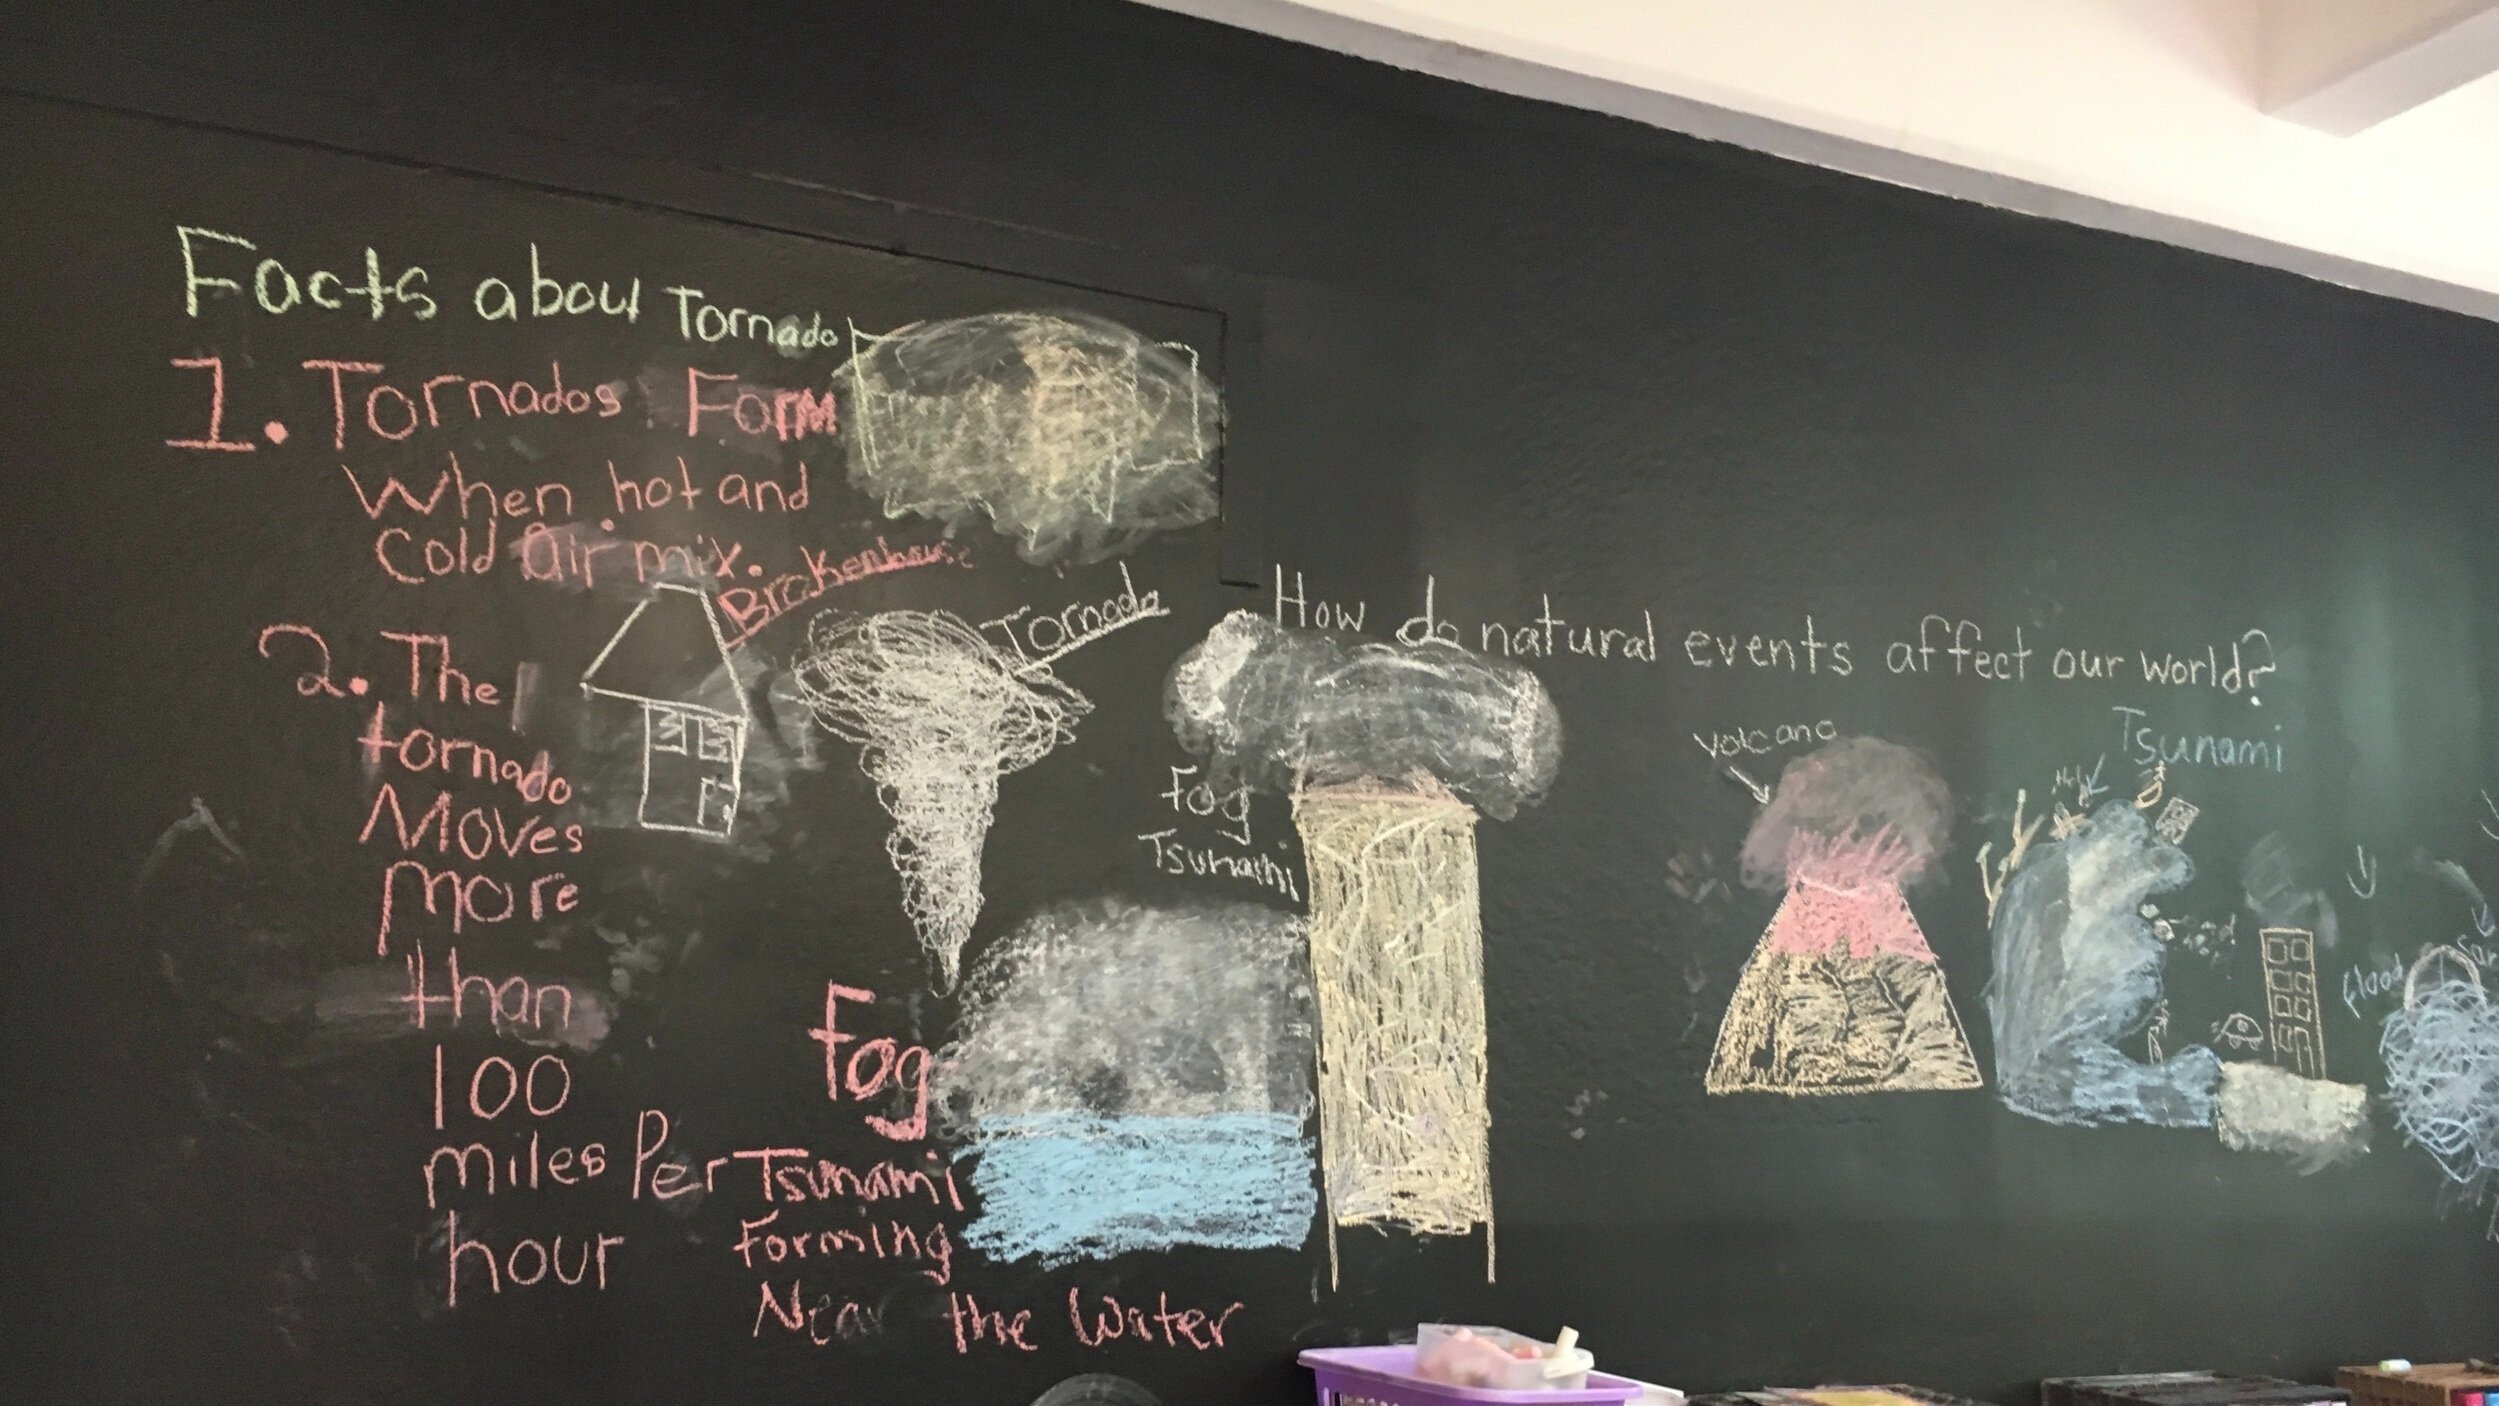 Facts about Tornado
1. Tornados Form
When hot and
Cold air mix.
Brokenhouse
2. The
tornado
Moves
more
than
100
miles Per
hour
Tornado
Fog
Tsunami
Fog
Tsunami
Forming
Near the Water
How do natural events affect our world?
Volcano
Tsunami
Help
flood